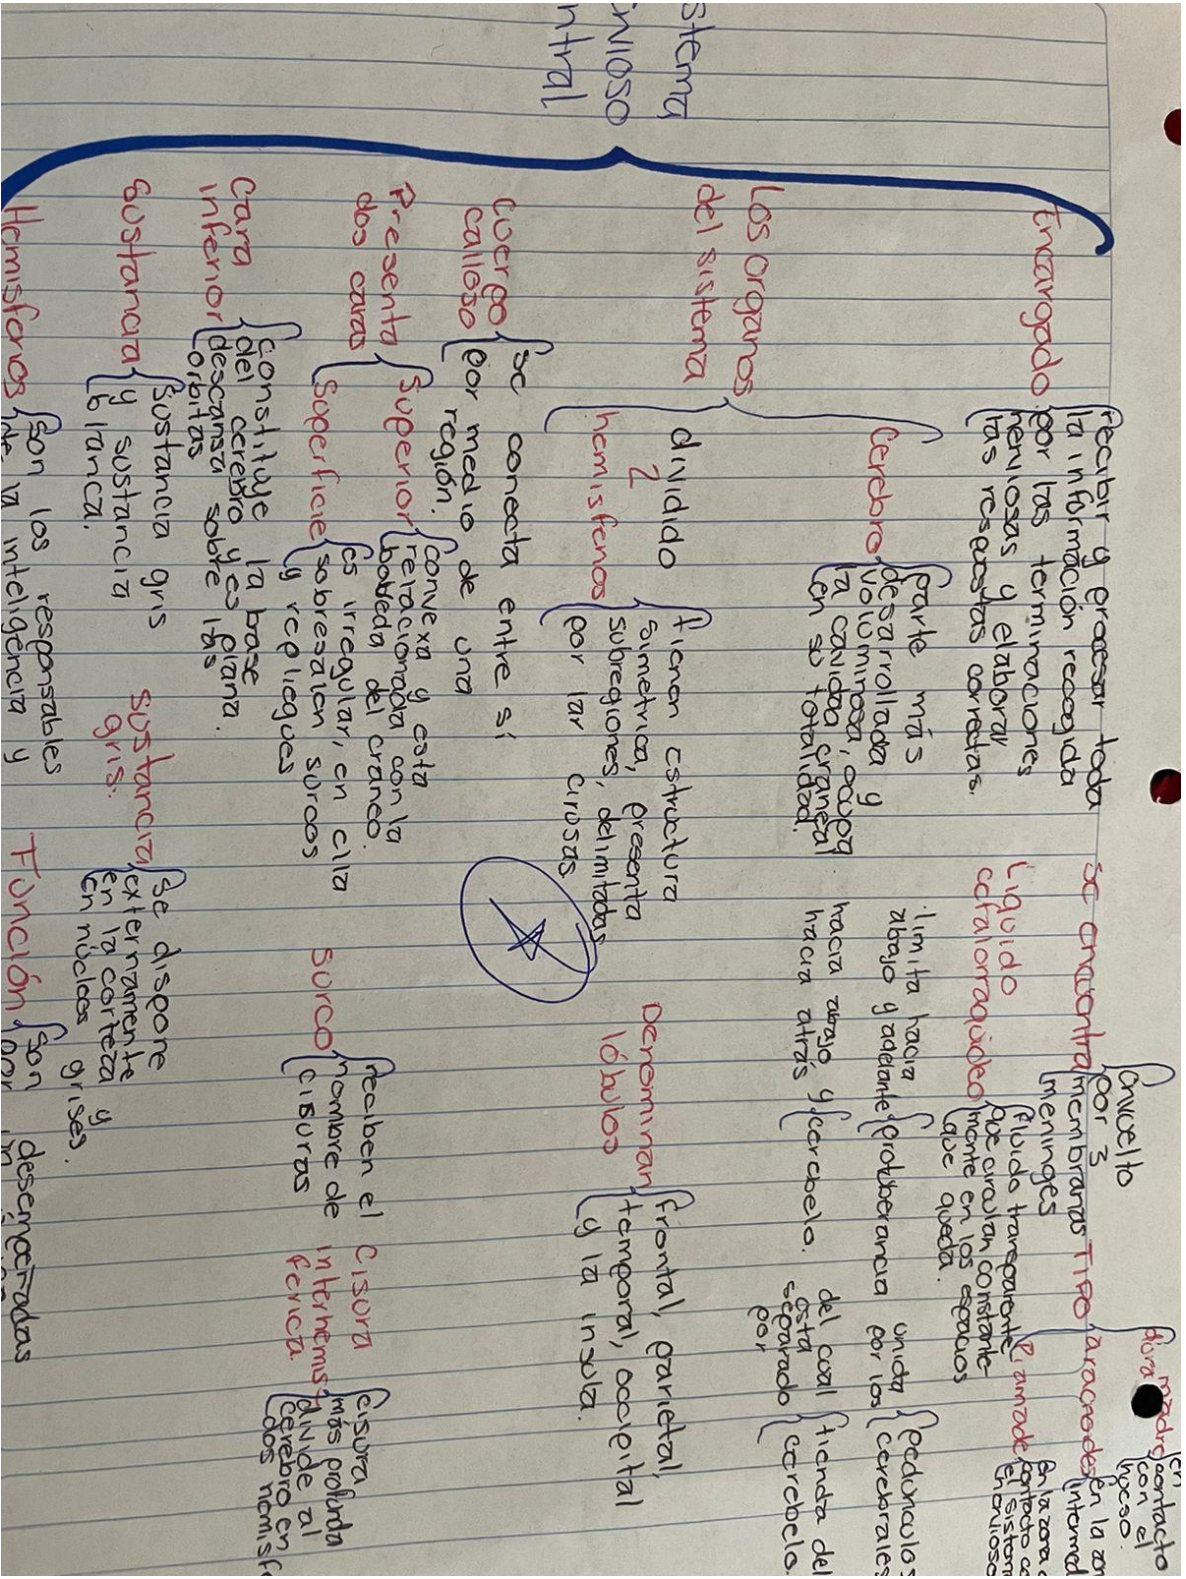 stema
nvioso
ntral
Encargado
recibir y procesar toda
la información recogida
por las terminaciones
nerviosas y elaborar
las respuestas correctas.
se encuentra
envuelto
por 3
membranas
meninges
Tipo
dura madre
en
contacto
con el
hueso.
aracnodes
en la zon
intermed
Piamadre
en la zona
contacto co
el sistem
nervioso
Liquido
cefalorraquideo
fluido transparente
que circulan constante-
mente en los espacios
que queda.
Los organos
del sistema
Cerebro
parte más
desarrollada y
voluminosa, ocupa
la cavidad craneal
en su totalidad.
limita hacia
abajo y adelante
protuberancia
unida
por los
pedunculos
cerebrales
hacia abajo y
hacia atrás
cerebelo.
del cual
esta
separado
por
tienda del
cerebelo.
dividido
2
hemisferios
tienen estructura
simetrica, presenta
subregiones, delimitadas
por lar cirusas
Denominan
lóbulos
frontal, parietal,
temporal, occipital
y la insula.
Cuerpo
calloso
se conecta entre sí
por medio de una
región.
Presenta
dos caras
Superior
convexa y esta
relacionada con la
boveda del craneo.
Superficie
es irregular, en ella
sobresalen surcos
y repliegues
Surco
reciben el
nombre de
cisuras
Cisura
interhemis
ferica
cisura,
más profunda
divide al
cerebro en
dos hemisfe
Cara
inferior
constituye la base
del cerebro y es plana.
descansa sobre las
orbitas
Sustancia
Sustancia gris
y sustancia
blanca.
Sustancia
gris.
se dispone
externamente
en la corteza y
en núcleos grises.
Hemisferios
son los responsables
de la inteligencia y
Función
son desempeñadas
por un